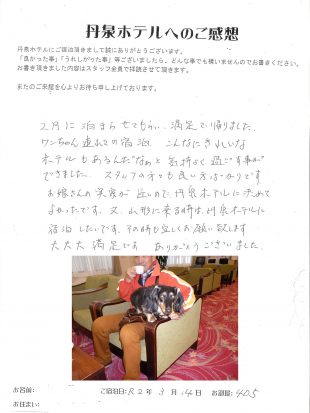 丹泉ホテルへのご感想
丹泉ホテルにご宿泊頂きまして誠にありがとうございます。
「良かった事」「うれしかった事」等ございましたら、どんな事でも構いませんのでお書きください。
お書き頂きました内容はスタッフ全員で拝読させて頂きます。
またのご来館を心よりお待ち申し上げております。
2月に泊まらせてもらい、満足で帰りました。
ワンちゃん連れでの宿泊、こんなにきれいな
ホテルもあるんだなぁと気持よく過ごす事が
できました。スタッフの方々も良い方ばかりです
お嫁さんの実家が近いので丹泉ホテルに決めて
よかったです。又、山形に来る時は、丹泉ホテルに
宿泊したいです。その時も宜しくお願い致します
大大大満足です ありがとうございました。
お名前:
ご宿泊日: R2年 3月 14日 お部屋: 405
お住まい: